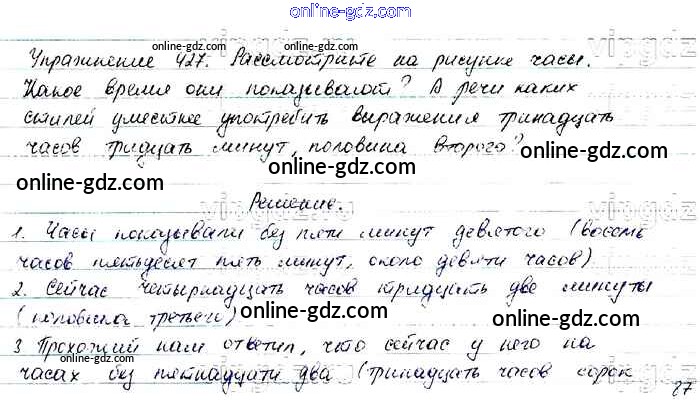 online-gdz.com
Упражнение 427. Рассмотрите на рисунке часы.
Какое время они показывают? А речи каких
стилей уместнее употребить выражения тринадцать
часов тридцать минут, половина второго?
Решение.
1. Часы показывали без пяти минут девятого (восемь
часов пятьдесят пять минут, около девяти часов)
2. Сейчас четырнадцать часов тридцать две минуты
(половина третьего)
3 Прохожий нам ответил, что сейчас у него на
часах без пятнадцати два (тринадцать часов сорок
27
online-gdz.com
online-gdz.com
online-gdz.com
online-gdz.com
online-gdz.com
online-gdz.com
online-gdz.com
online-gdz.com
online-gdz.com
online-gdz.com